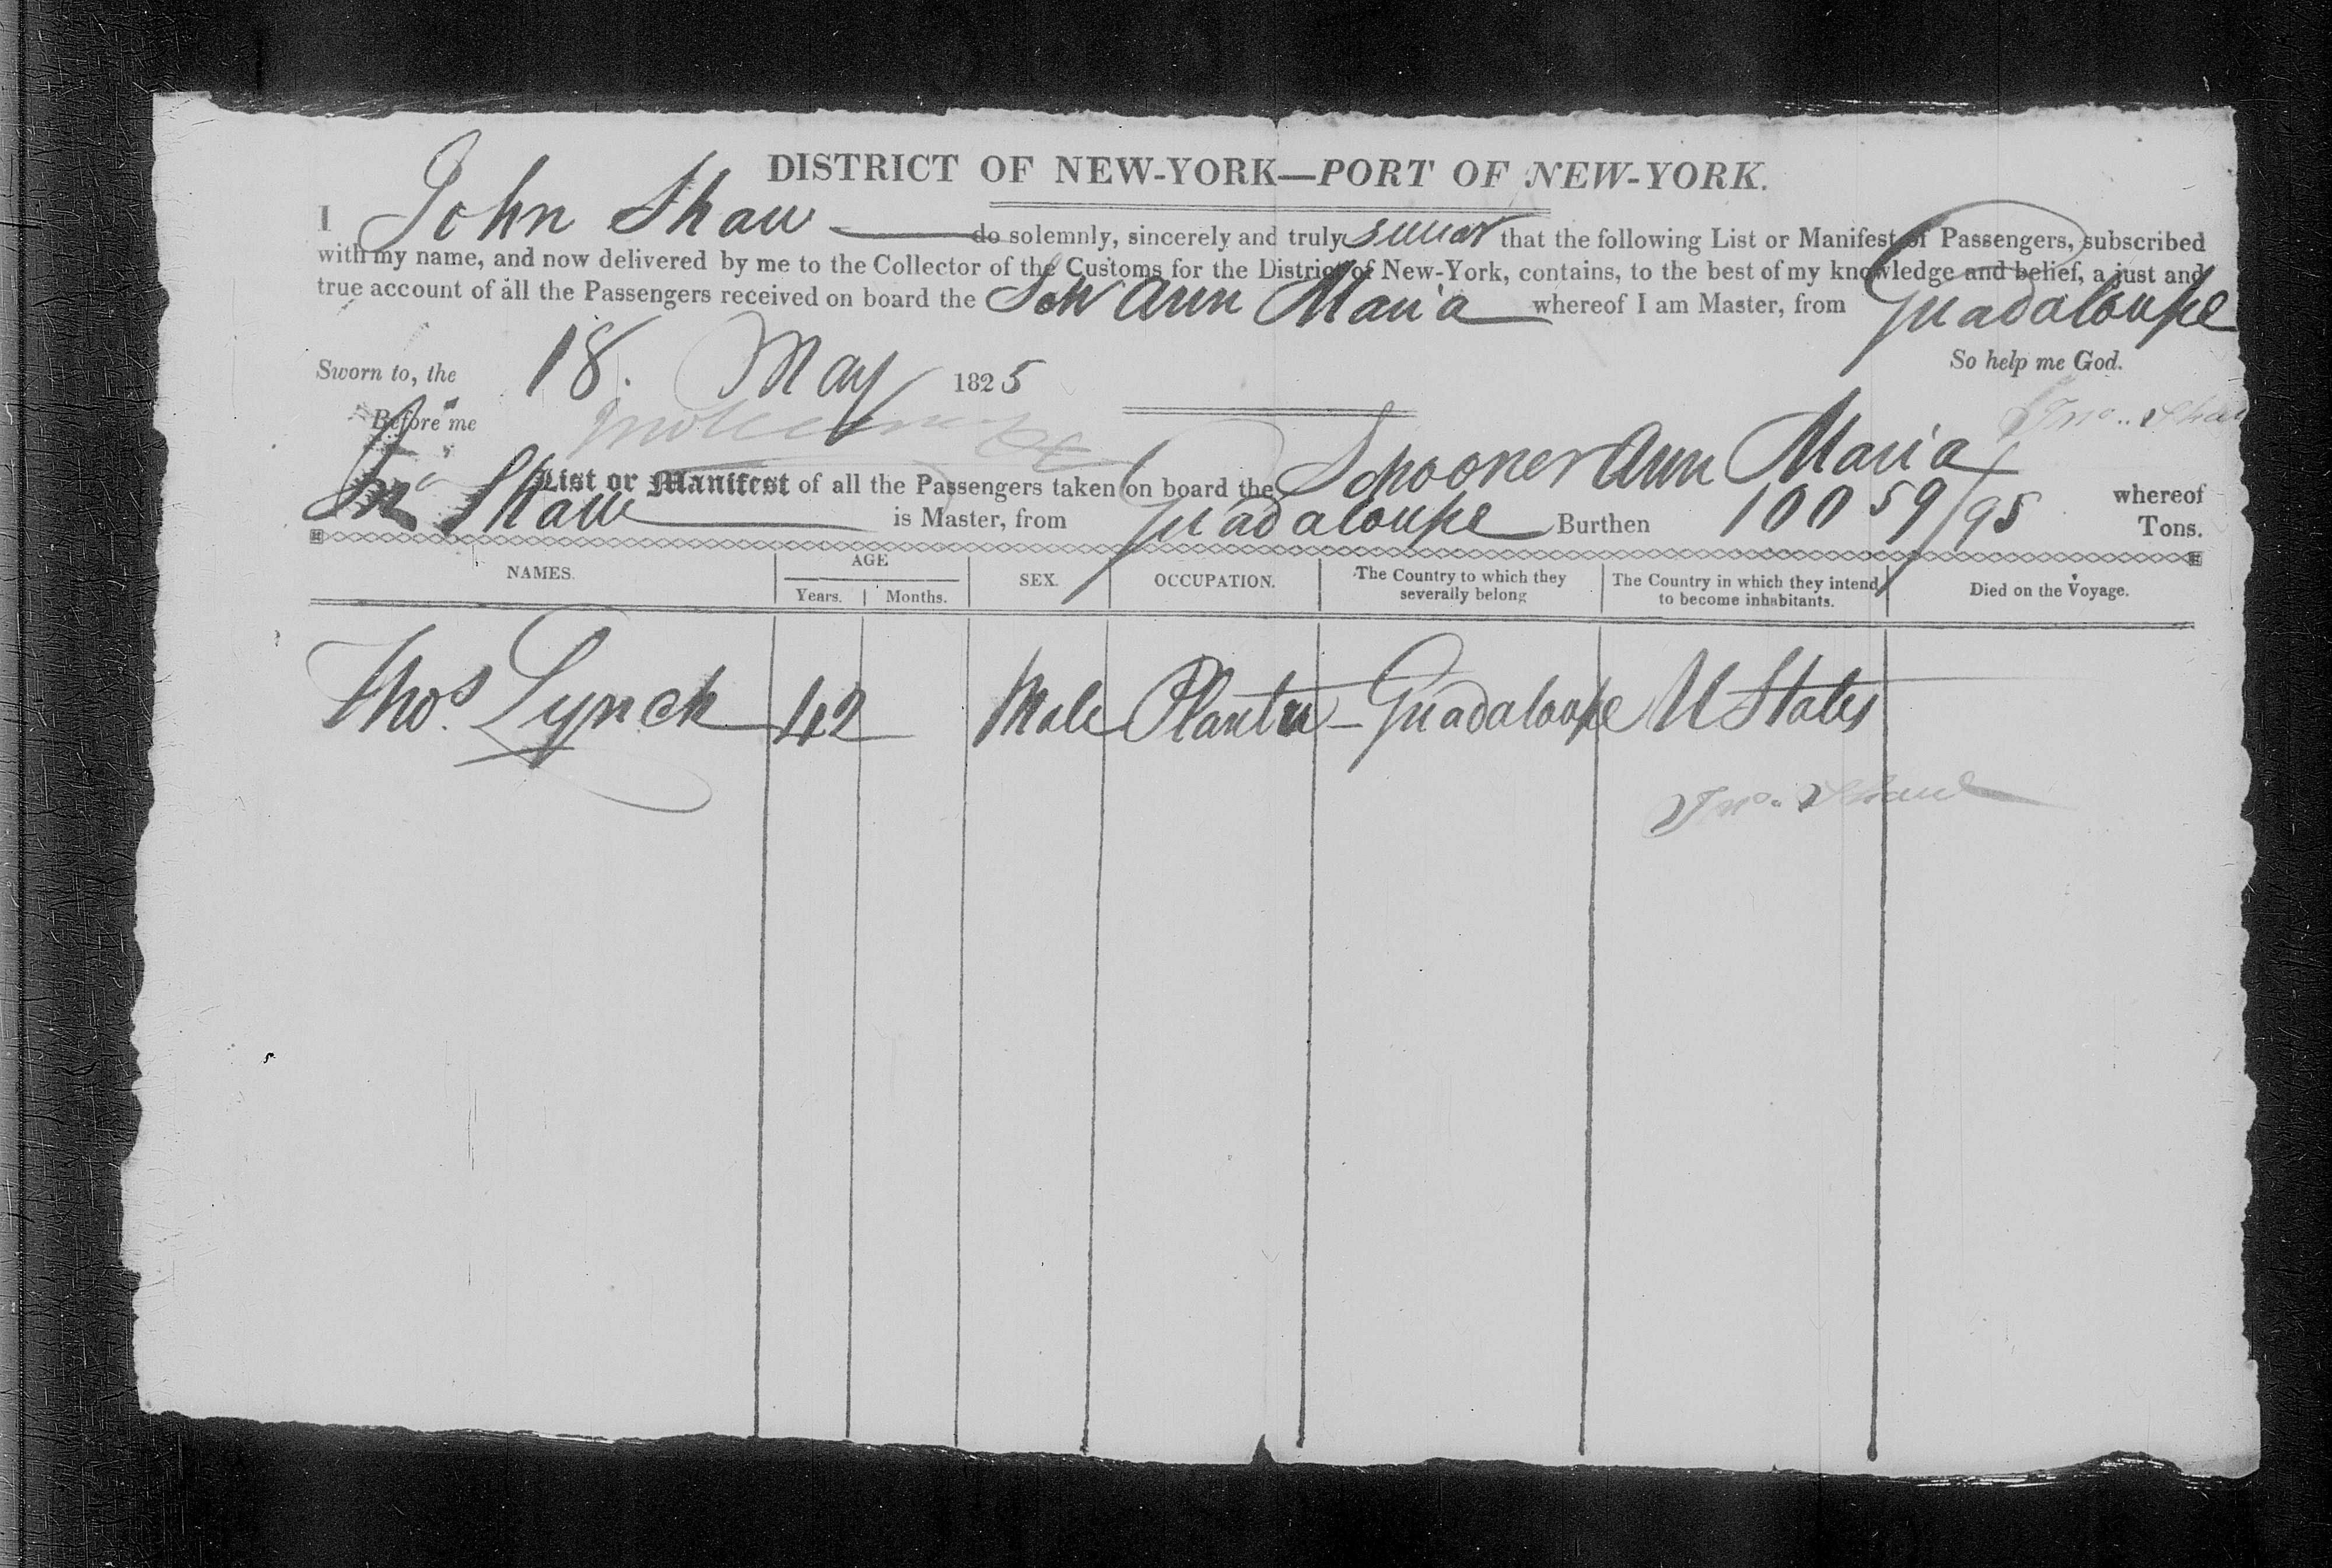 DISTRICT OF NEW-YORK—PORT OF NEW-YORK.
I John Shaw do solemnly, sincerely and truly swear that the following List or Manifest of Passengers, subscribed
with my name, and now delivered by me to the Collector of the Customs for the District of New-York, contains, to the best of my knowledge and belief, a just and
true account of all the Passengers received on board the Schr Ann Maria whereof I am Master, from Guadaloupe
So help me God.
Sworn to, the 18. May 1825
Before me
Jno.. Shaw
List or Manifest of all the Passengers taken on board the Schooner Ann Maria whereof
Jno Shaw is Master, from Guadaloupe Burthen 100 59/95 Tons.
NAMES. AGE Years. Months. SEX. OCCUPATION. The Country to which they severally belong The Country in which they intend to become inhabitants. Died on the Voyage.
Thos. Lynch 42 Male Planter - Guadaloupe U States
Jno.. Shaw